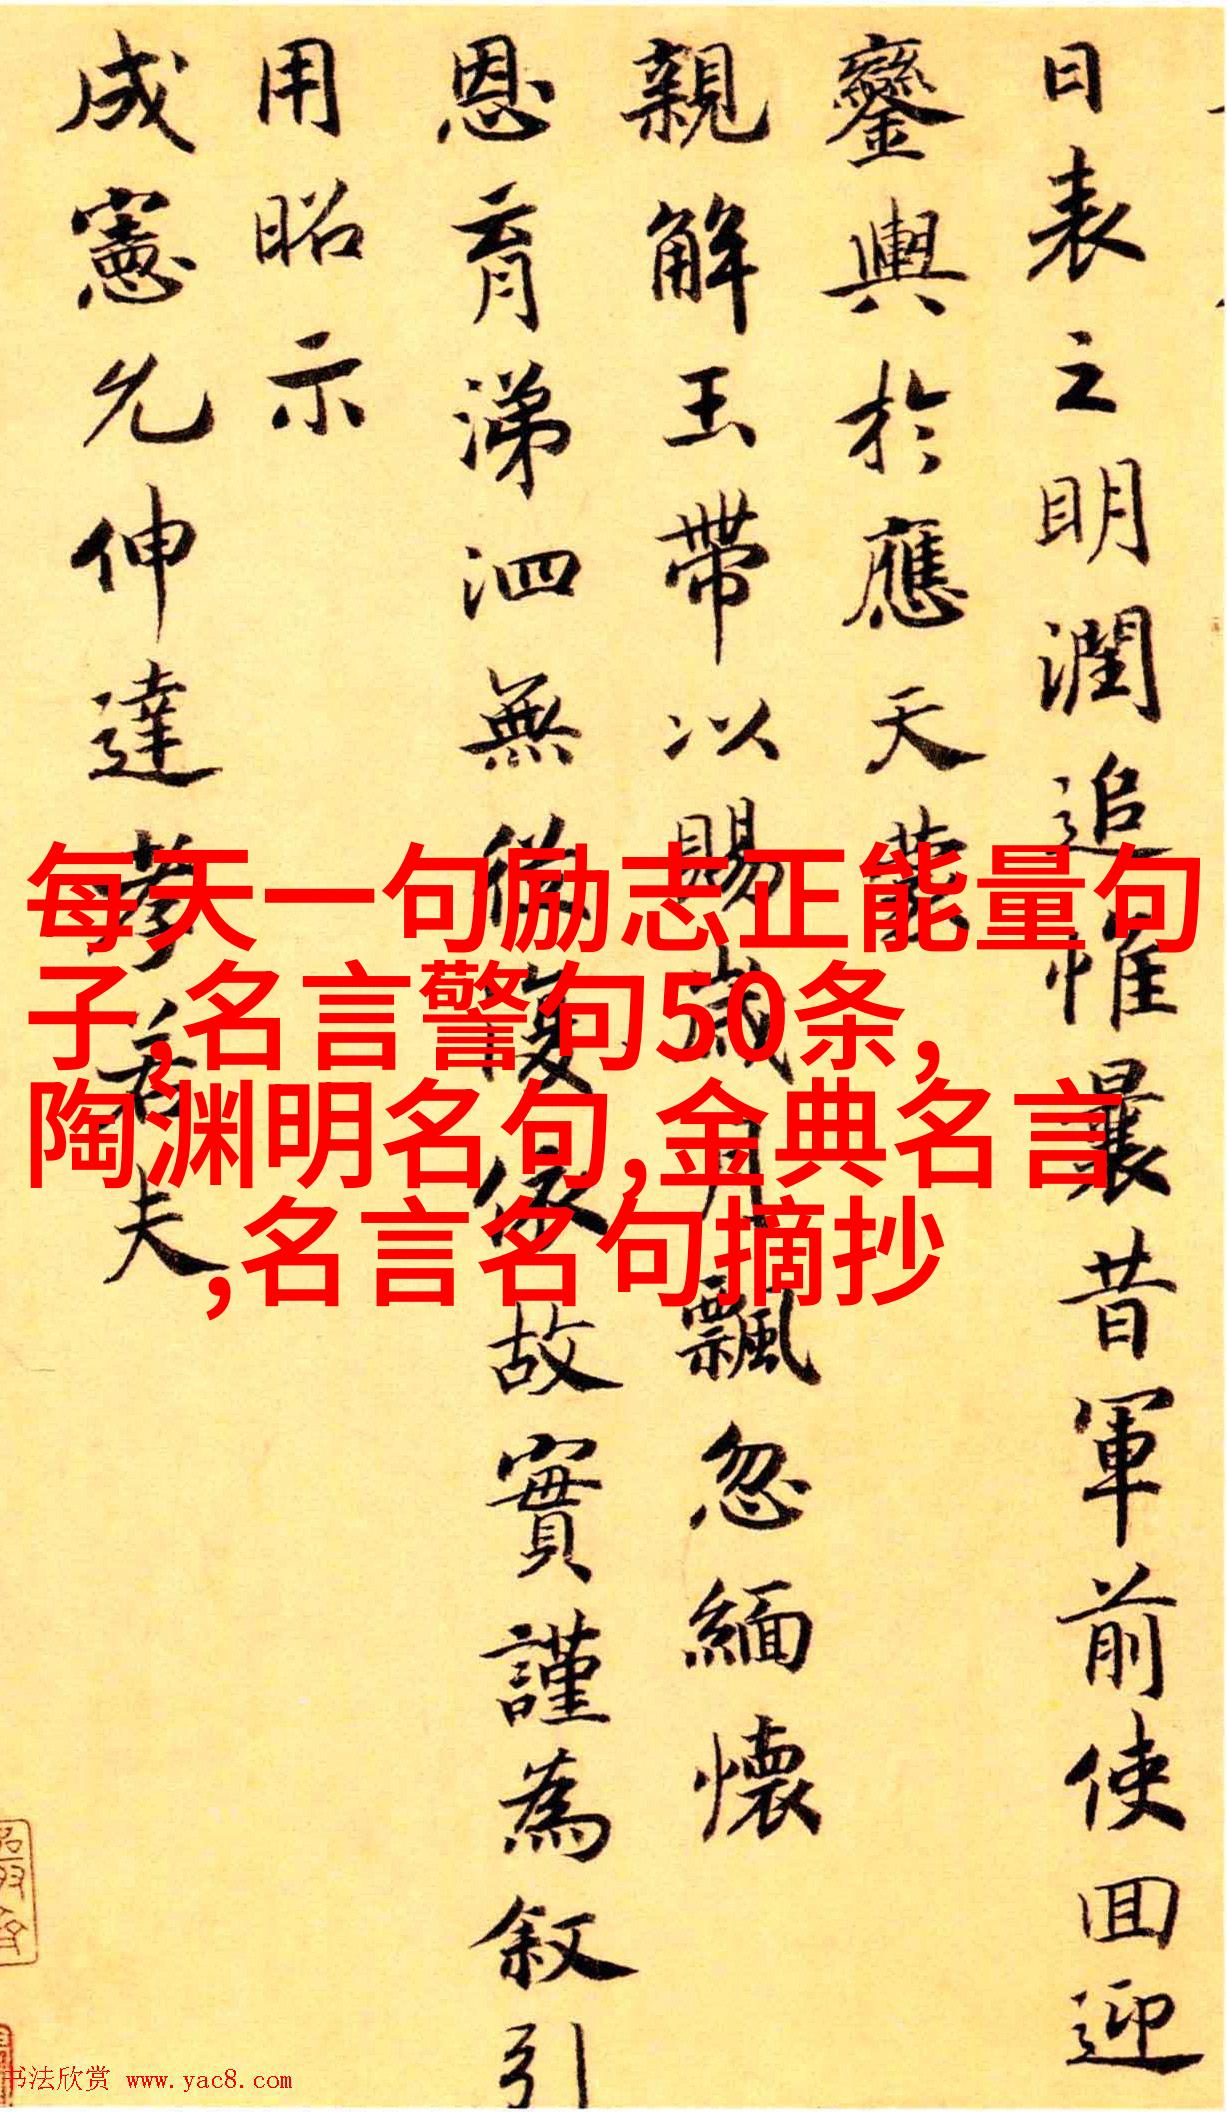 日表之明潤追惟曩昔軍前使回迎
鑾輿於應天蒙
親解玉帶以賜歲月飄忽緬懷
恩育涕泗無從復緣故實謹為叙引
用昭示
成憲允伸達孝若夫
每天一句励志正能量句
子,名言警句50条,
陶渊明名句,金典名言
,名言名句摘抄
书法欣赏 www.yac8.com